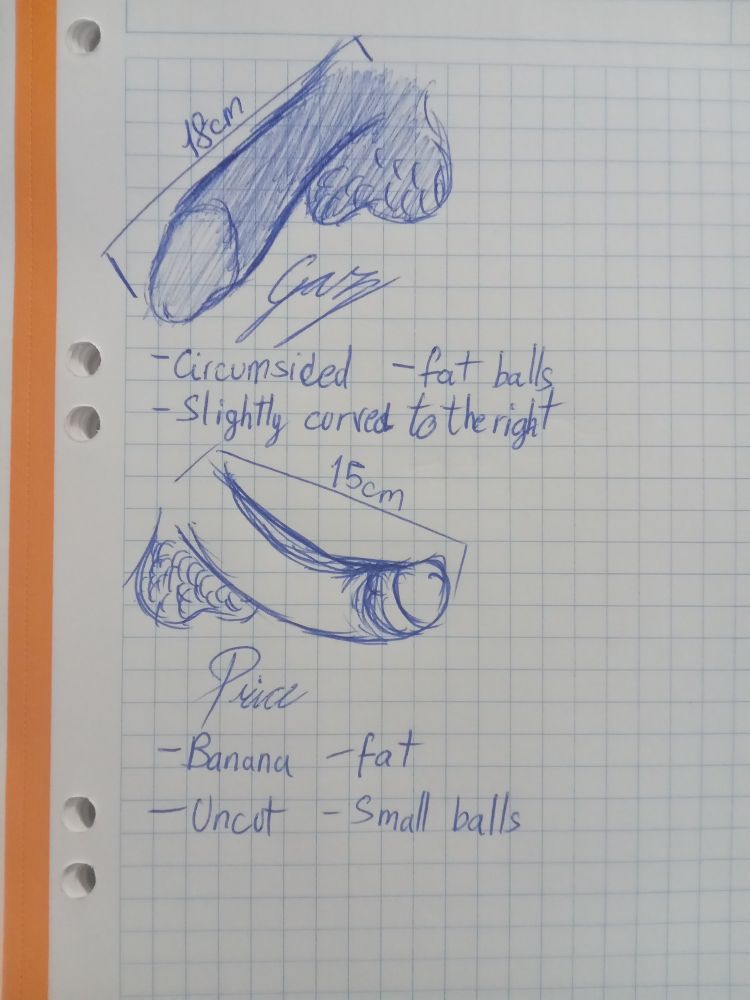 18cm
Gaz
-Circumsided -fat balls
-Slightly curved to the right
15cm
Price
-Banana -fat
-Uncut -Small balls